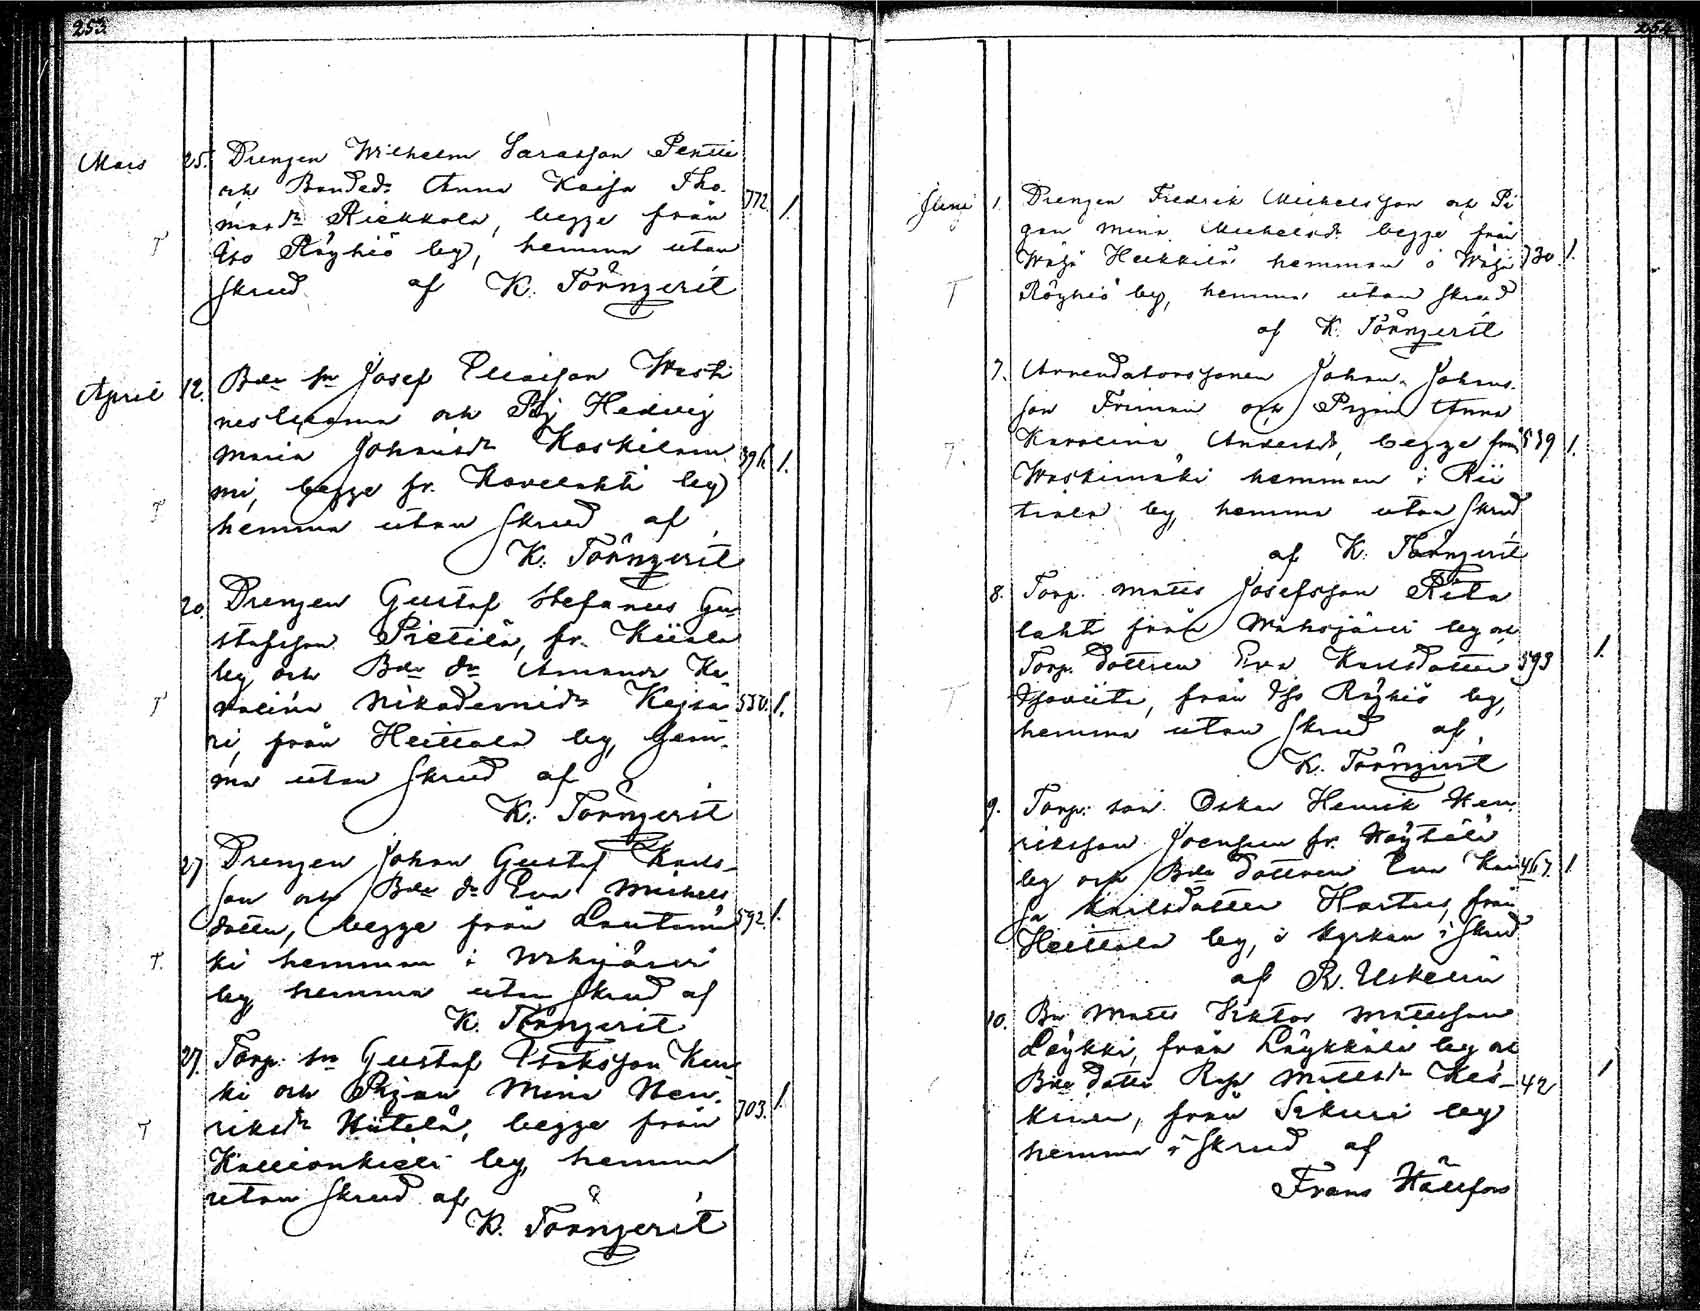 253.
Mars 25. Drengen Wilhelm Sarasson Pentti
och Bonded. Anna Kaisa Tho-
masdr Riekkola, begge från 772. 1.
T Iso Röyhiö by, hemma utan
skrud af K. Törnqerit
April 12. Bde sn Josef Eliaison
och Pig Hedvig
Maria Johansdr Koskilam 396. 1.
mi, begge fr. Kovelahti by
T hemma utan skrud af
K. Törnqerit
20. Drengen Gustaf Stefanus Gu-
stafsson Pietilä, fr. Kiiala
by och Bde dr Amanda Ka-
rolina Nikodemidr Keisa- 550. 1.
T ri, från Heittola by, hem-
ma utan skrud af
K. Törnqerit
27 Drengen Johan Gustaf Karls-
son och Bde dr Eva Michels
dotter, begge från Lautamä 592. 1.
T. ki hemman i Wahojärvi
by hemma utan skrud af
K. Törnqerit
27. Torp. sn Gustaf Isaksson Kus-
ki och Pigan Mina Hen-
riksdr Hiitelä, begge från 703. 1.
T Kallionkieli by, hemma
utan skrud af
K. Törnqerit
254
Juni 1. Drengen Fredrik Michelsson och Pi
gan Mina Michelsdr begge från
Wähä Heikkilä hemman i Wähä 730. 1.
T Röyhiö by, hemma utan skrud
af K. Törnqerit
7. Arrendatorssonen Johan Johans-
son Friman och Pigan Anna
Karolina Andersdr, begge från 539 1.
T. Waskimäki hemman i Rii
tiala by, hemma utan skrud
af K. Törnqerit
8. Torp. Matts Josefsson Rita
lahti från Wahojärvi by och
Torp. dottren Eva Karlsdotter 593 1.
T från Iso Röyhiö by,
hemma utan skrud af
K. Törnqerit
9. Torp: son Oskar Henrik Hen
riksson Joensuu fr. Höytölä
by och Bde dottren Eva Kai 467. 1
sa Karlsdotter Hartus, från
Heittola by, i kyrkan i skrud
af R. Uskelin
10. Bn Matts Viktor Mattsson
Löykki, från Löykkälä by och
Bde dotter Rosa Mattsdr Kes- 42 1
kinen, från Sikuri by
hemma i skrud af
Frans Hällfors